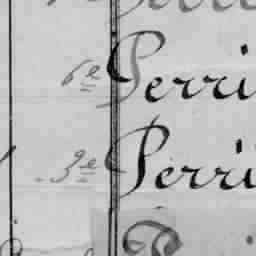 6e Perri
3e Perri